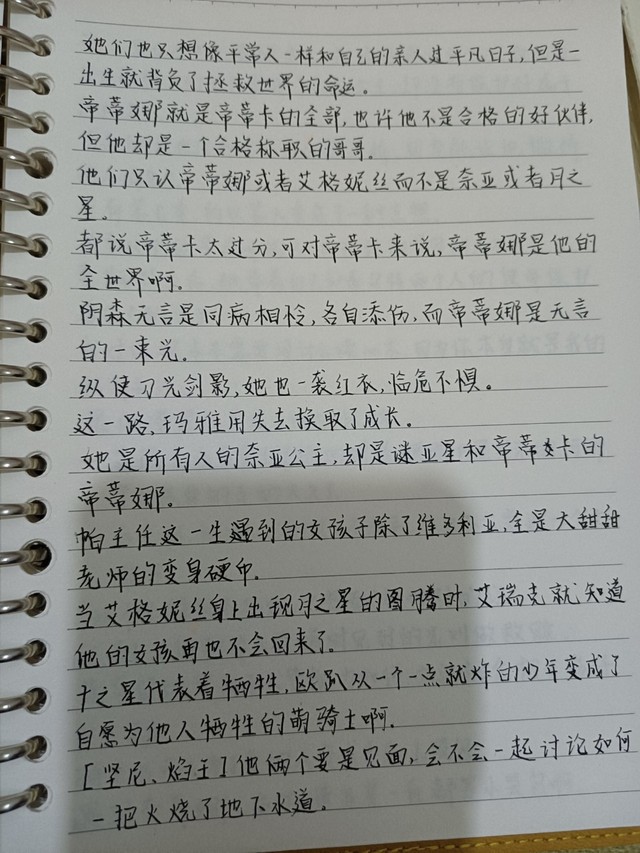 她们也只想像平常人一样和自己的亲人过平凡日子,但是一
出生就背负了拯救世界的命运。
帝蒂娜就是帝蒂卡的全部,也许他不是合格的好伙伴,
但他却是一个合格称职的哥哥。
他们只认帝蒂娜或者艾格妮丝而不是奈亚或者月之
星。
都说帝蒂卡太过分,可对帝蒂卡来说,帝蒂娜是他的
全世界啊。
阴森无言是同病相怜,各自添伤,而帝蒂娜是无言
的一束光。
纵使刀光剑影,她也一袭红衣,临危不惧。
这一路,玛雅用失去换取了成长。
她是所有人的奈亚公主,却是谜亚星和帝蒂卡的
帝蒂娜。
帕主任这一生遇到的女孩子除了维多利亚,全是大甜甜
老师的变身硬币.
当艾格妮丝身上出现月之星的图腾时,艾瑞克就知道
他的女孩再也不会回来了.
十之星代表着牺牲,欧趴从一个一点就炸的少年变成了
自愿为他人牺牲的萌骑士啊.
[坚尼、焰王]他俩个要是见面,会不会一起讨论如何
一把火烧了地下水道。